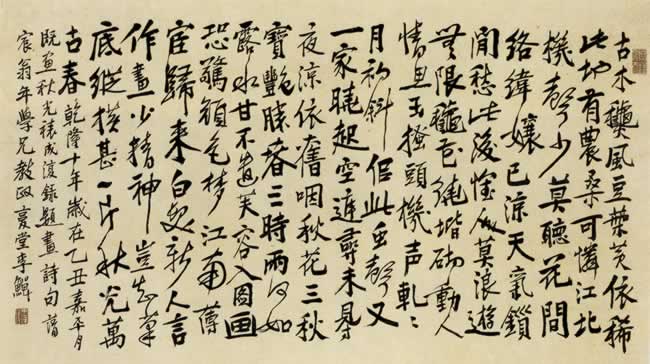 古木穐風豆葉黃依稀
此地有農桑可憐江北
機聲少莫聽花間
絡緯孃已涼天氣鎖
閒愁此後莫浪遊
無限穐花繞堦砌動人
情思玉搔頭機声軋〻
月初斜但此虫聲又
一家曉起空庭尋未見
夜涼依舊咽秋花三秋
寶艷勝春三時雨何如
露水甘不道芙容入圖画
恐驚顏色夢江南薄
宦歸来白髮新人言
作畫少精神豈知筆
底縱橫甚一片秋光萬
古春乾隆十年歲在乙丑嘉平月
既画秋光成復錄題畫詩句
宸翁年學兄教政复堂李鱓